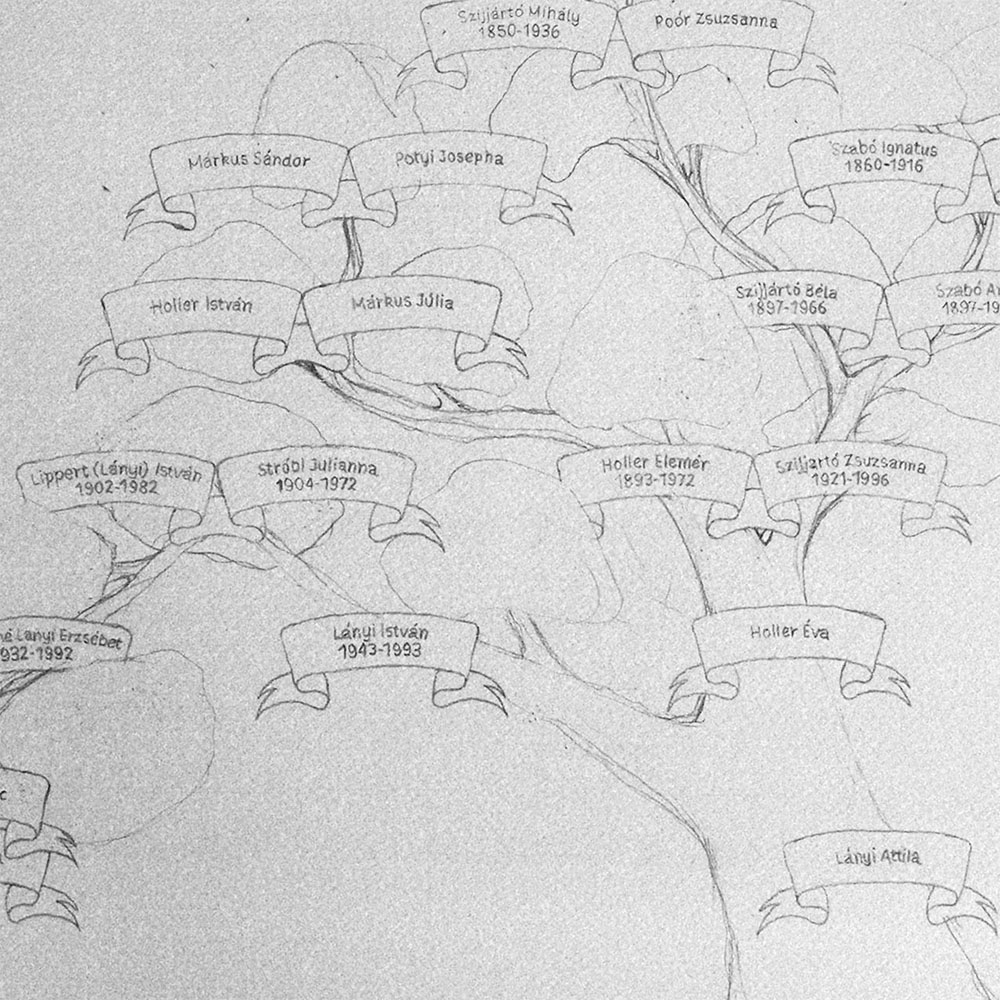 Szijjártó Mihály
1850-1936
Poór Zsuzsanna
Márkus Sándor
Potyi Josepha
Szabó Ignatus
1860-1916
Holler István
Márkus Júlia
Szijjártó Béla
1897-1966
Szabó
1897-19
Lippert (Lányi) István
1902-1982
Stróbl Julianna
1904-1972
Holler Elemér
1893-1972
Szijjártó Zsuzsanna
1921-1996
né Lányi Erzsébet
932-1992
Lányi István
1943-1993
Holler Éva
Lányi Attila